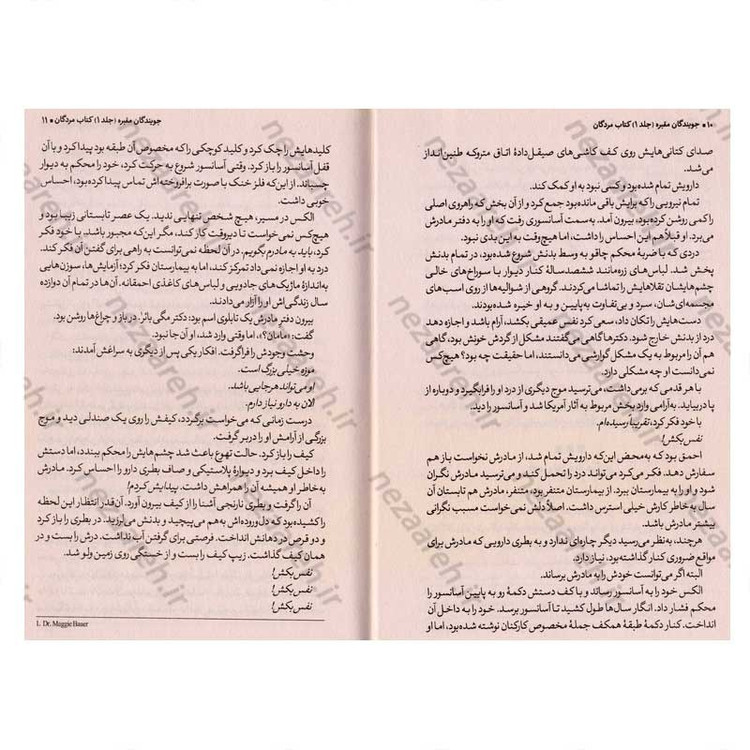 ۱۰ • جویندگان مقبره (جلد ۱) کتاب مردگان
صدای کتانی‌هایش روی کف کاشی‌های صیقل‌دادهٔ اتاق متروکه طنین‌انداز
می‌شد.
دارویش تمام شده بود و کسی نبود به او کمک کند.
تمام نیرویی را که برایش باقی مانده بود جمع کرد و از آن بخش که راهروی اصلی
را کمی روشن کرده بود، بیرون آمد. به‌سمت آسانسوری رفت که او را به دفتر مادرش
می‌برد. او قبلاً هم این احساس را داشت، اما هیچ‌وقت به این بدی نبود.
دردی که با ضربهٔ محکم چاقو به وسط بدنش شروع شده بود، در تمام بدنش
پخش شد. لباس‌های زره‌مانند ششصدسالهٔ کنار دیوار با سوراخ‌های خالی
چشم‌هایشان تقلاهایش را تماشا می‌کردند. گروهی از شوالیه‌ها از روی اسب‌های
مجسمه‌ای‌شان، سرد و بی‌تفاوت به‌پایین و به او خیره شده بودند.
دست‌هایش را تکان داد، سعی کرد نفس عمیقی بکشد، آرام باشد و اجازه دهد
درد از بدنش خارج شود. دکترها گاهی می‌گفتند مشکل از گردش خونش بود، گاهی
هم آن را مربوط به یک مشکل گوارشی می‌دانستند، اما حقیقت چه بود؟ هیچ‌کس
نمی‌دانست او چه مشکلی دارد.
با هر قدمی که برمی‌داشت، می‌ترسید موج دیگری از درد او را فرابگیرد و دوباره از
پا دربیاید. به‌آرامی وارد بخش مربوط به آثار آمریکا شد و آسانسور را دید.
با خود فکر کرد، تقریباً رسیده‌ام.
نفس بکش!
احمق بود که به‌محض این‌که دارویش تمام شد، از مادرش نخواست باز هم
سفارش دهد. فکر می‌کرد می‌تواند درد را تحمل کند و می‌ترسید مادرش نگران
شود و او را به بیمارستان ببرد. از بیمارستان متنفر بود، متنفر، مادرش هم تابستان آن
سال به‌خاطر کارش خیلی استرس داشت. اصلاً دلش نمی‌خواست مسبب نگرانی
بیشتر مادرش باشد.
هرچند، به‌نظر می‌رسید دیگر چاره‌ای ندارد و به بطری دارویی که مادرش برای
مواقع ضروری کنار گذاشته بود، نیاز دارد.
البته اگر می‌توانست خودش را به مادرش برساند.
الکس خود را به آسانسور رساند و با کف دستش دکمهٔ رو به پایین آسانسور را
محکم فشار داد. انگار سال‌ها طول کشید تا آسانسور برسد. خود را به داخل آن
انداخت. کنار دکمهٔ طبقهٔ همکف جملهٔ مخصوص کارکنان نوشته شده بود، اما او
جویندگان مقبره (جلد ۱) کتاب مردگان • ۱۱
کلیدهایش را چک کرد و کلید کوچکی را که مخصوص آن طبقه بود پیدا کرد و با آن
قفل آسانسور را باز کرد. وقتی آسانسور شروع به حرکت کرد، خود را محکم به دیوار
چسباند. از این‌که فلز خنک با صورت برافروخته‌اش تماس پیدا کرده بود، احساس
خوبی داشت.
الکس در مسیر، هیچ شخص تنهایی ندید. یک عصر تابستانی زیبا بود و
هیچ‌کس نمی‌خواست تا دیروقت کار کند، مگر این‌که مجبور باشد. با خود فکر
کرد، باید به مادرم بگویم. در آن لحظه نمی‌توانست به راهی برای گفتن آن فکر کند.
درد به او اجازه نمی‌داد تمرکز کند، اما به بیمارستان فکر کرد؛ آزمایش‌ها، سوزن‌هایی
به‌اندازهٔ ماژیک‌های جادویی و لباس‌های کاغذی احمقانه. آن‌ها در تمام آن دوازده
سال زندگی‌اش او را آزار می‌دادند.
بیرون دفتر مادرش یک تابلوی اسم بود: دکتر مگی بائر¹. در باز و چراغ‌ها روشن بود.
گفت: «مامان؟»، اما وقتی وارد شد، او آن‌جا نبود.
وحشت وجودش را فراگرفت. افکار یکی پس از دیگری به سراغش آمدند:
موزه خیلی بزرگ است.
او می‌تواند هرجایی باشد.
الان به دارو نیاز دارم.
درست زمانی که می‌خواست برگردد، کیفش را روی یک صندلی دید و موج
بزرگی از آرامش او را دربر گرفت.
کیف را باز کرد. حالت تهوع باعث شد چشم‌هایش را محکم ببندد، اما دستش
را داخل کیف برد و دیوارهٔ پلاستیکی و صاف بطری دارو را احساس کرد. مادرش
به‌خاطر او همیشه آن را همراهش داشت. پیدایش کردم!
آن را گرفت و بطری نارنجی آشنا را از کیف بیرون آورد. آن‌قدر انتظار این لحظه
را کشیده بود که دل‌وروده‌اش به‌هم می‌پیچید و بدنش می‌لرزید. در بطری را باز کرد
و دو قرص در دهانش انداخت. فرصتی برای گرفتن آب نداشت. درش را بست و در
همان کیف گذاشت. زیپ کیف را بست و از خستگی روی زمین ولو شد.
نفس بکش!
نفس بکش!
نفس بکش!
1. Dr. Maggie Bauer
nezaareh.ir